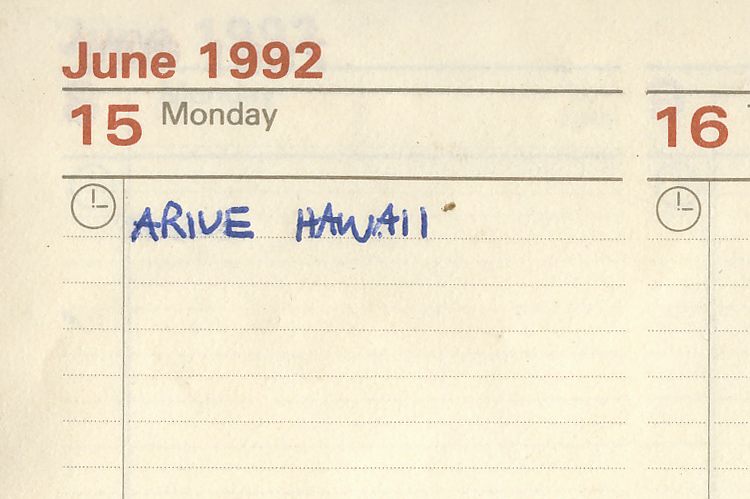 June 1992
15 Monday
16
ARIVE HAWAII